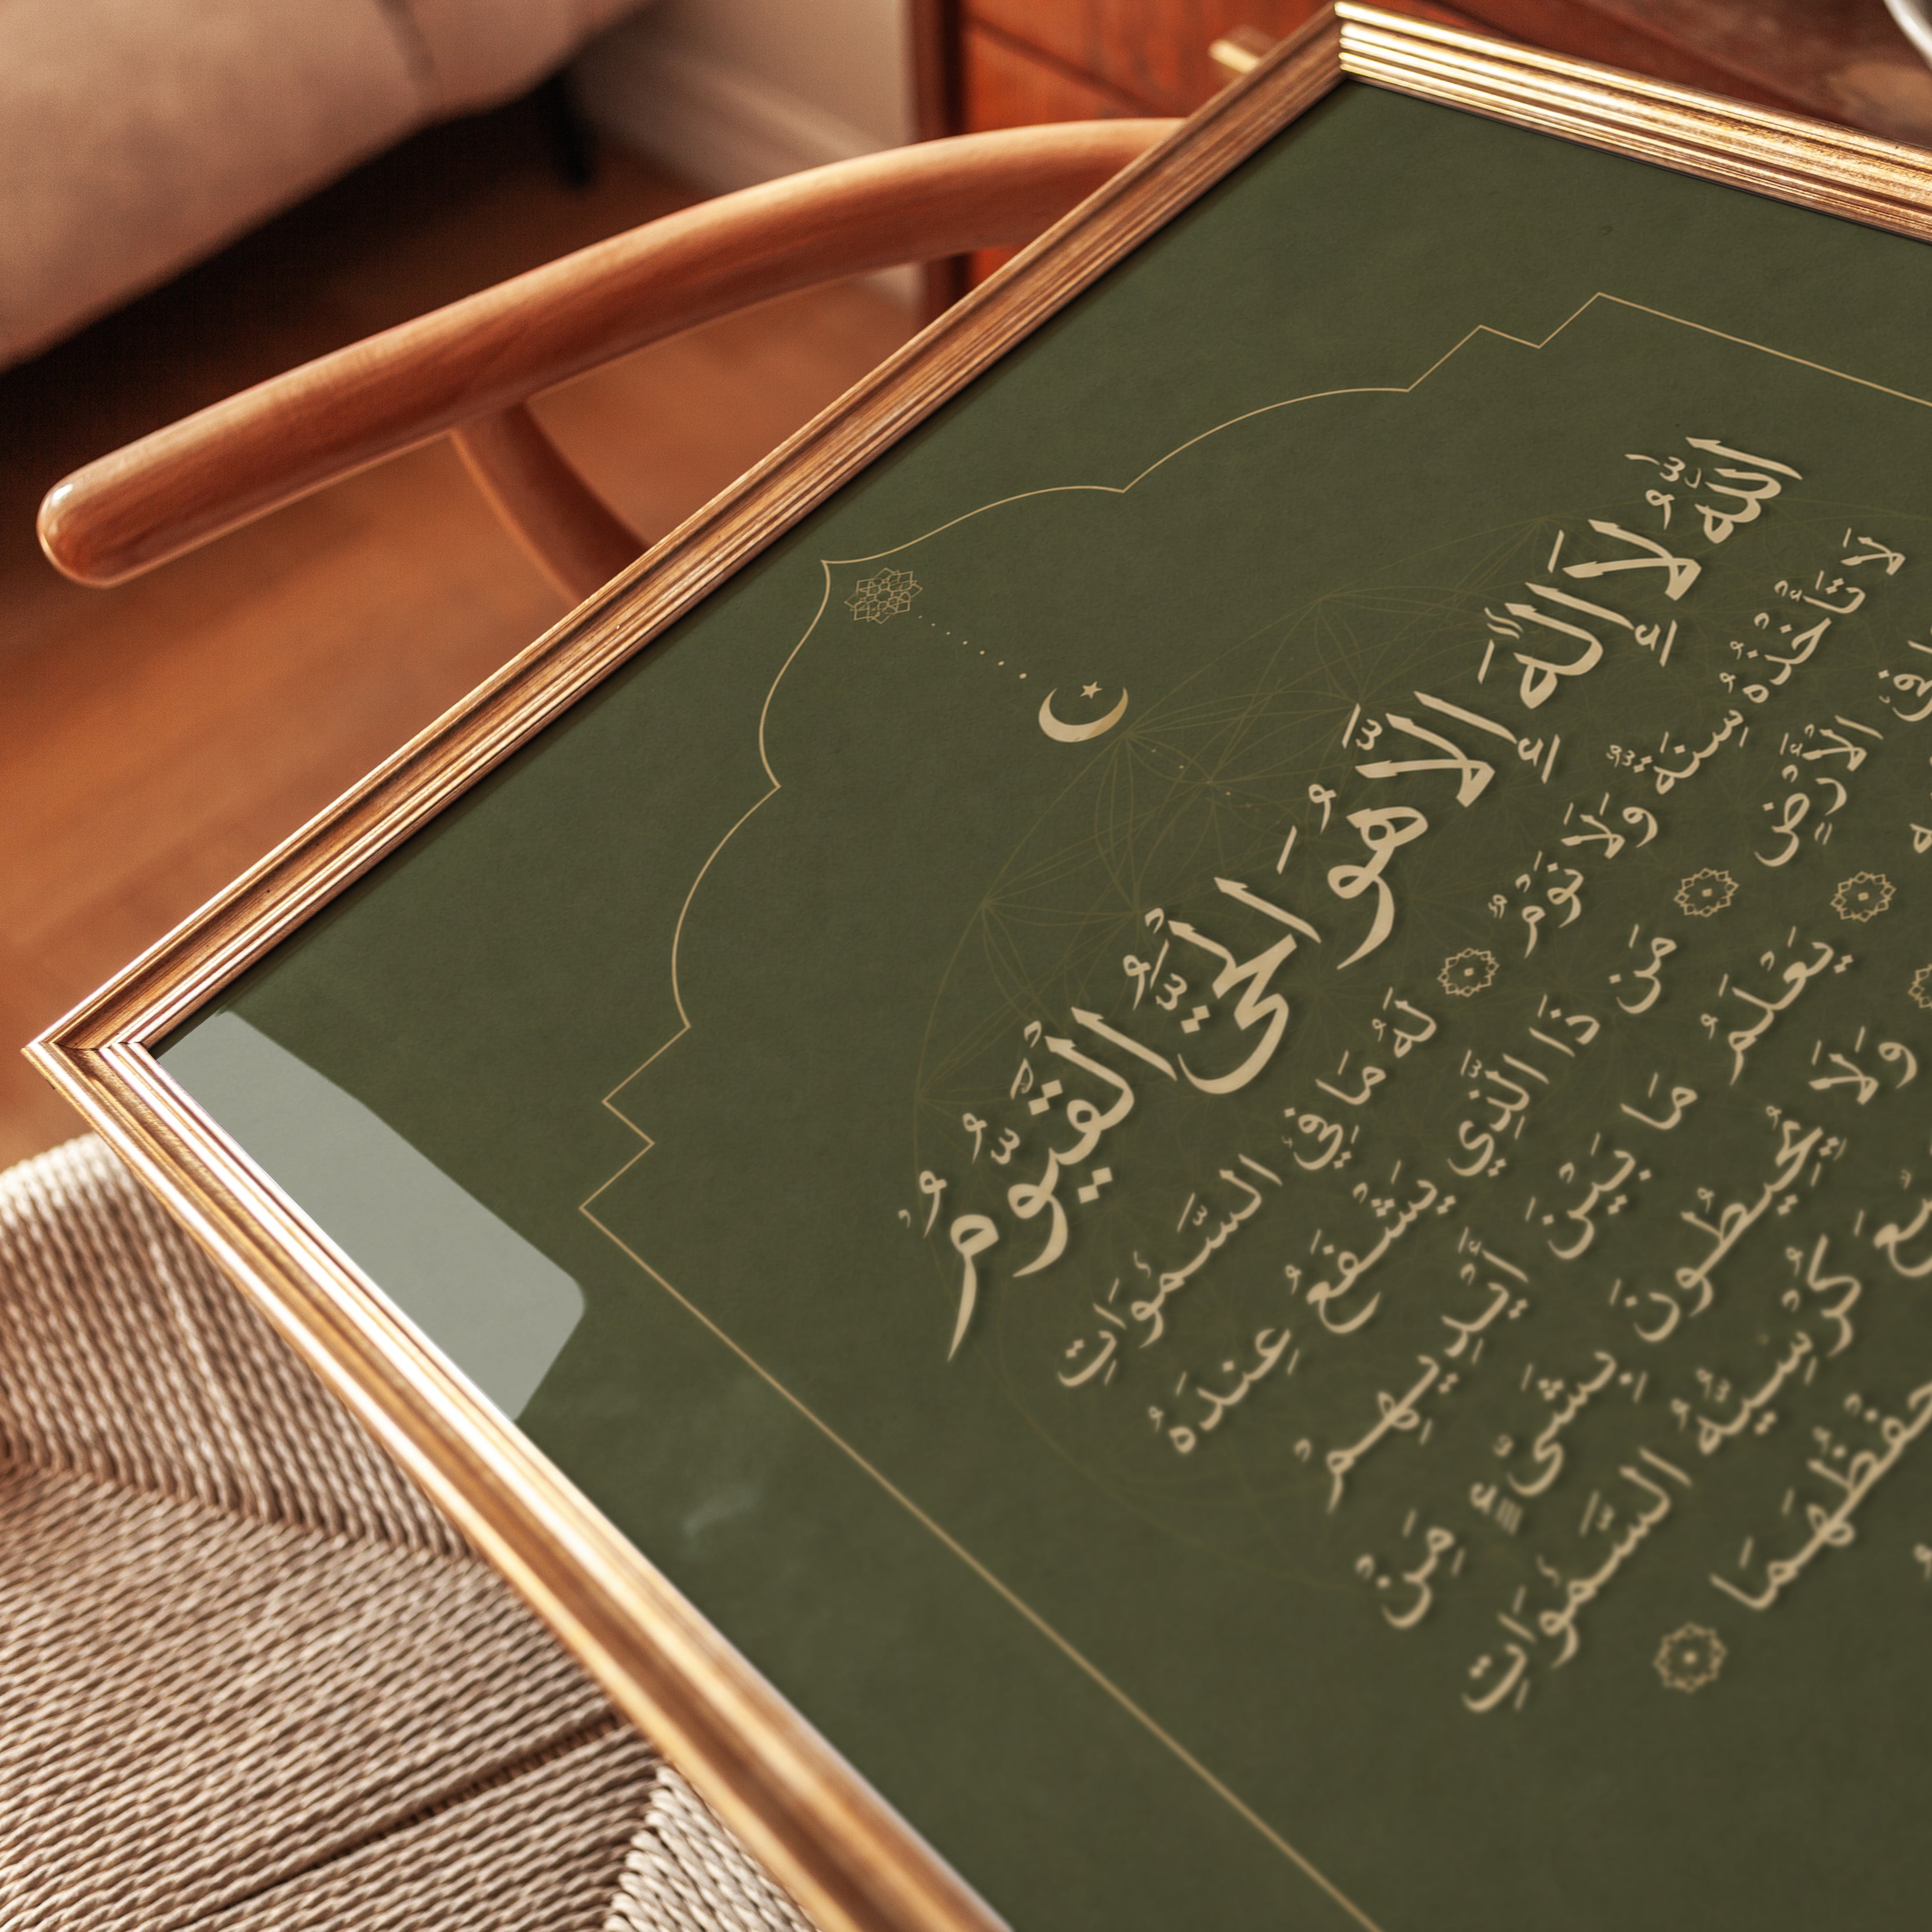 اللهُ لَا إِلَٰهَ إِلَّا هُوَ الْحَيُّ الْقَيُّومُ
لَا تَأْخُذُهُ سِنَةٌ وَلَا نَوْمٌ لَهُ مَا فِي السَّمٰوَاتِ
فِي الْأَرْضِ مَن ذَا الَّذِي يَشْفَعُ عِندَهُ
يَعْلَمُ مَا بَيْنَ أَيْدِيهِمْ
وَلَا يُحِيطُونَ بِشَيْءٍ مِنْ
كُرْسِيُّهُ السَّمٰوَاتِ
حِفْظُهُمَا